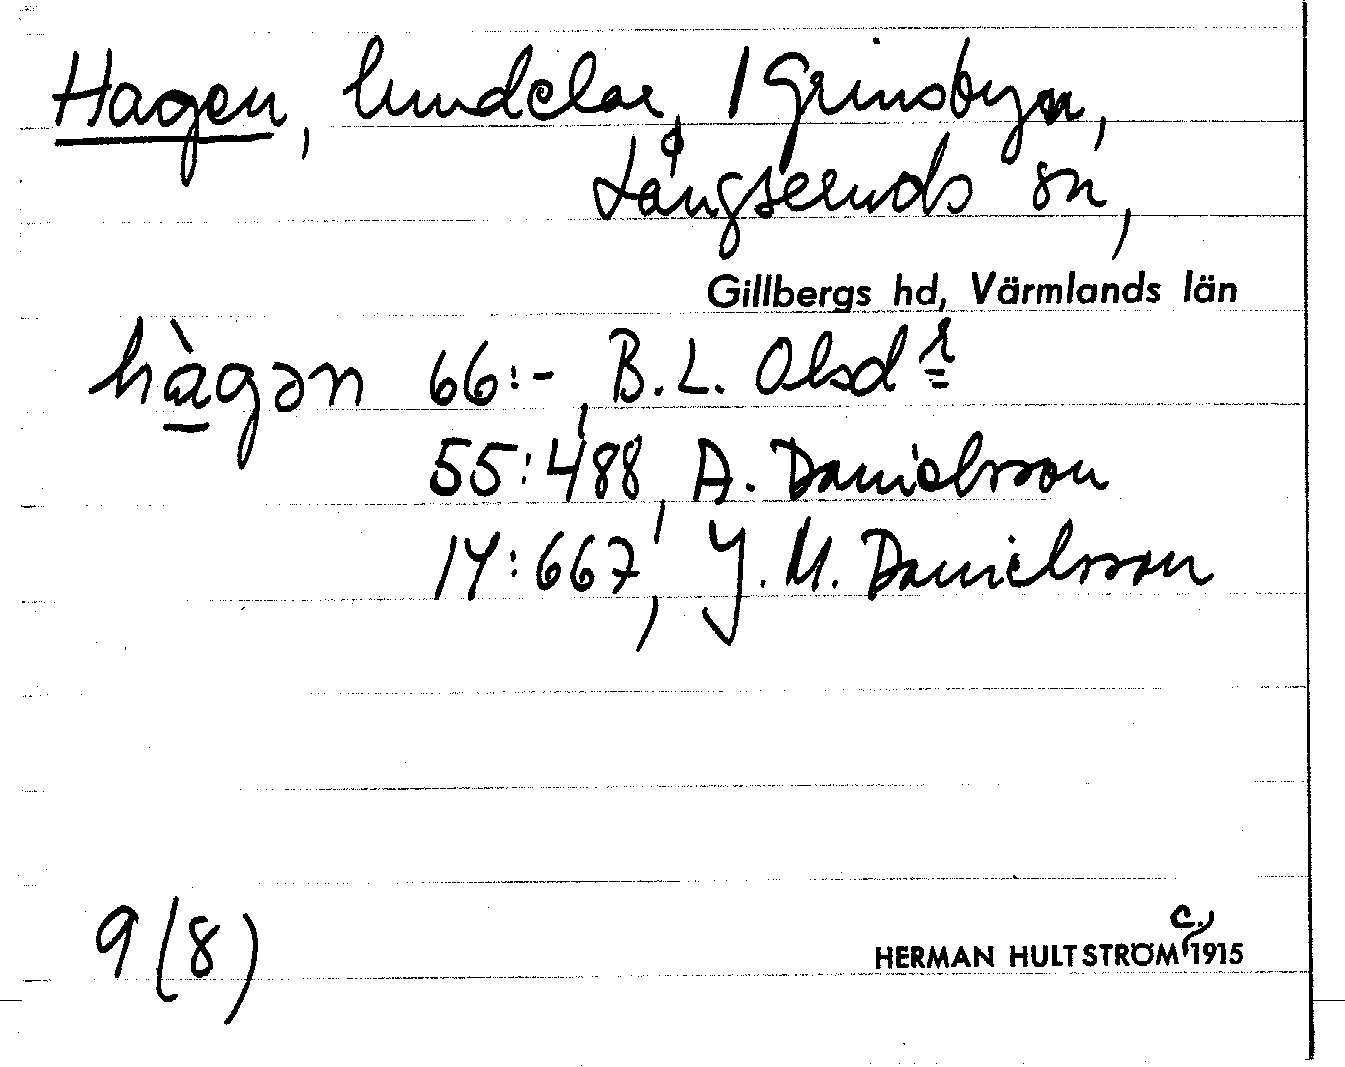 Hagen, lundelar, 1 Grinsbyn,
Långseruds sn,
Gillbergs hd, Värmlands län
hàgən 66:-, B.L. Olsdr
55:488, A. Danielsson
14:667, J. M. Danielsson
9(8)
HERMAN HULTSTRÖM c. 1915